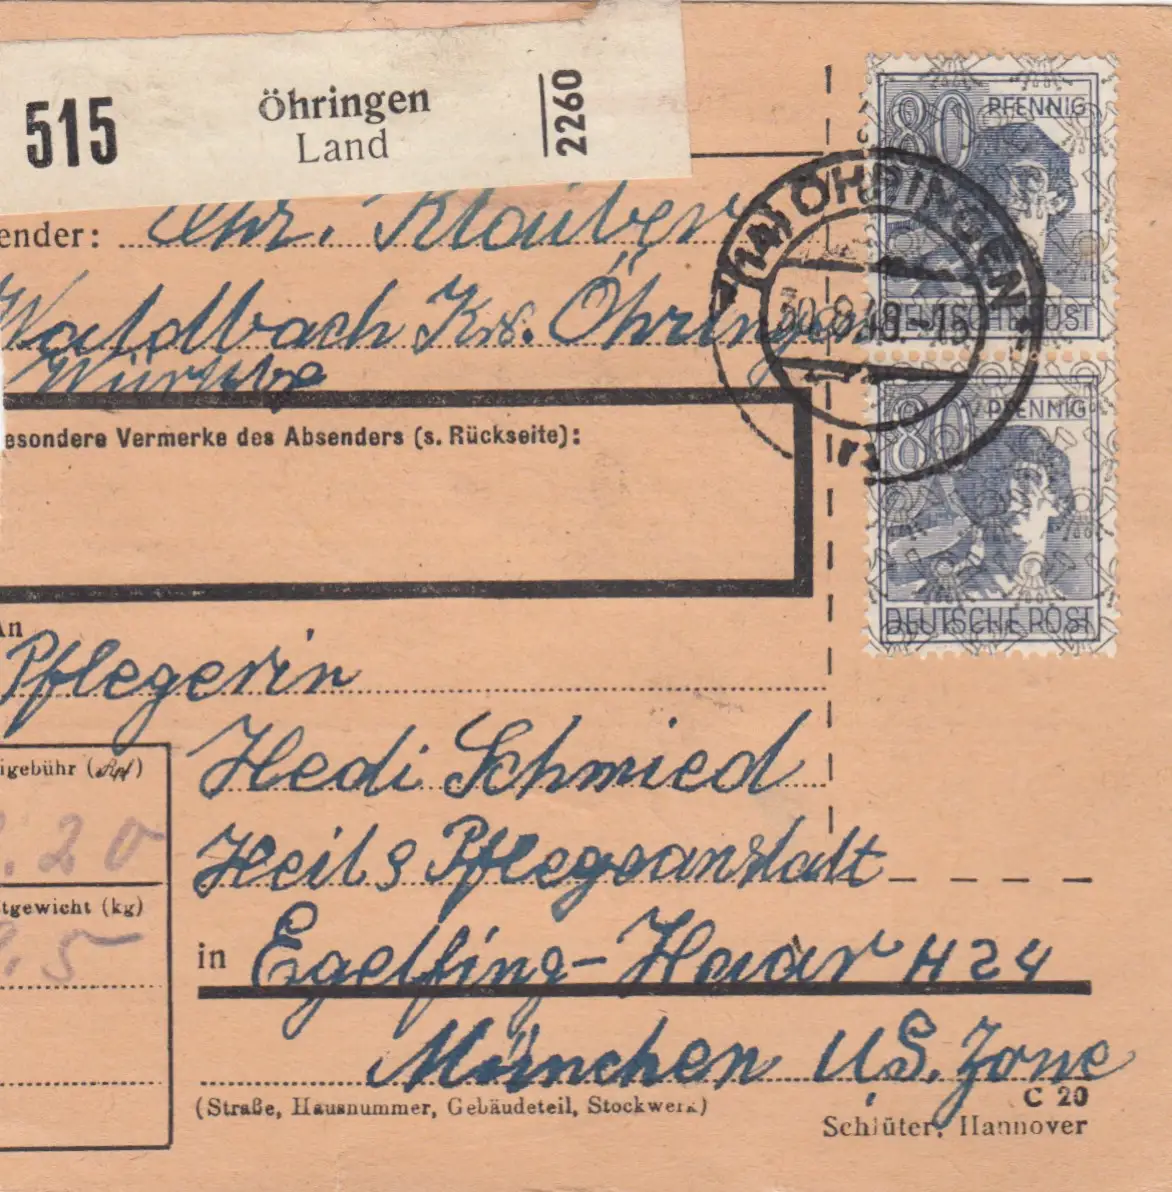 515 Öhringen Land 2260
ender: Chr. Klaiber
Waldbach Kr. Öhringen
Württbg
esondere Vermerke des Absenders (s. Rückseite):
80 PFENNIG
DEUTSCHE POST
80 PFENNIG
DEUTSCHE POST
(14a) ÖHRINGEN
30.8.48.-15
An
Pflegerin
Hedi Schmied
Heil & Pflegeanstalt
in Egelfing-Haar H24
München US. Zone
(Straße, Hausnummer, Gebäudeteil, Stockwerk)
C 20
Schlüter, Hannover
igebühr (Rpf)
.20
tgewicht (kg)
.5